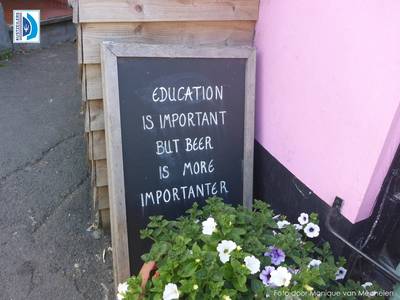 EDUCATION
IS IMPORTANT
BUT BEER
IS MORE
IMPORTANTER
Foto door Monique van Middelen